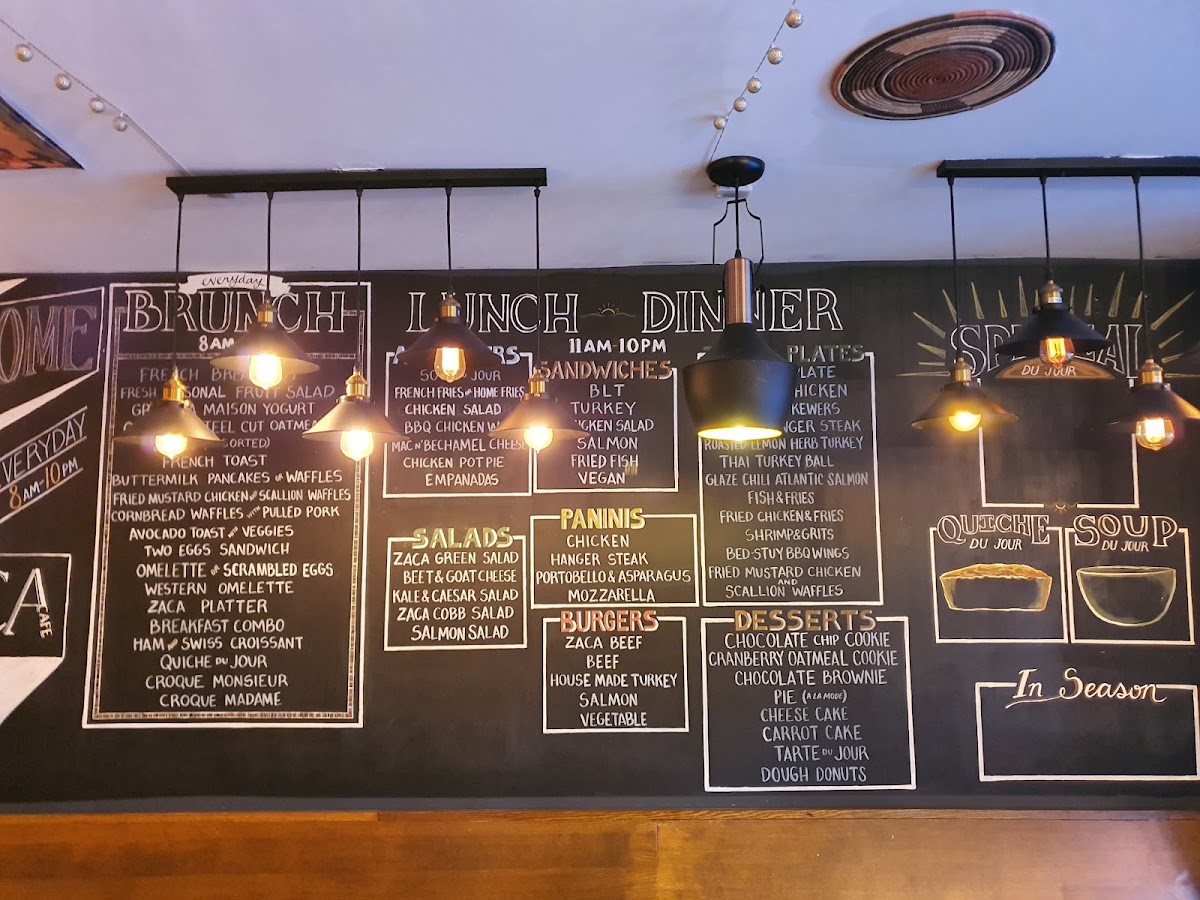 OME
EVERYDAY
8AM-10PM
CA
CAFE
everyday
BRUNCH
8AM
FRENCH
FRUIT SALAD
MAISON YOGURT
STEEL CUT
FRENCH TOAST
BUTTERMILK PANCAKES or WAFFLES
FRIED MUSTARD CHICKEN and SCALLION WAFFLES
CORNBREAD WAFFLES WITH PULLED PORK
AVOCADO TOAST with VEGGIES
TWO EGGS SANDWICH
OMELETTE or SCRAMBLED EGGS
WESTERN OMELETTE
ZACA PLATTER
BREAKFAST COMBO
HAM and SWISS CROISSANT
QUICHE DU JOUR
CROQUE MONSIEUR
CROQUE MADAME
LUNCH DINNER
11AM-10PM
JOUR
FRENCH FRIES or HOME FRIES
CHICKEN SALAD
BBQ CHICKEN
MAC N' BECHAMEL CHEESE
CHICKEN POT PIE
EMPANADAS
SALADS
ZACA GREEN SALAD
BEET & GOAT CHEESE
KALE & CAESAR SALAD
ZACA COBB SALAD
SALMON SALAD
SANDWICHES
BLT
TURKEY
CHICKEN SALAD
SALMON
FRIED FISH
VEGAN
PANINIS
CHICKEN
HANGER STEAK
PORTOBELLO & ASPARAGUS
MOZZARELLA
BURGERS
ZACA BEEF
BEEF
HOUSE MADE TURKEY
SALMON
VEGETABLE
PLATES
PLATE
CHICKEN
STEAK
ROASTED LEMON HERB TURKEY
THAI TURKEY BALL
GLAZE CHILI ATLANTIC SALMON
FISH & FRIES
FRIED CHICKEN & FRIES
SHRIMP & GRITS
BED-STUY BBQ WINGS
FRIED MUSTARD CHICKEN
AND
SCALLION WAFFLES
DESSERTS
CHOCOLATE CHIP COOKIE
CRANBERRY OATMEAL COOKIE
CHOCOLATE BROWNIE
PIE (A LA MODE)
CHEESE CAKE
CARROT CAKE
TARTE DU JOUR
DOUGH DONUTS
DU JOUR
QUICHE
DU JOUR
SOUP
DU JOUR
In Season